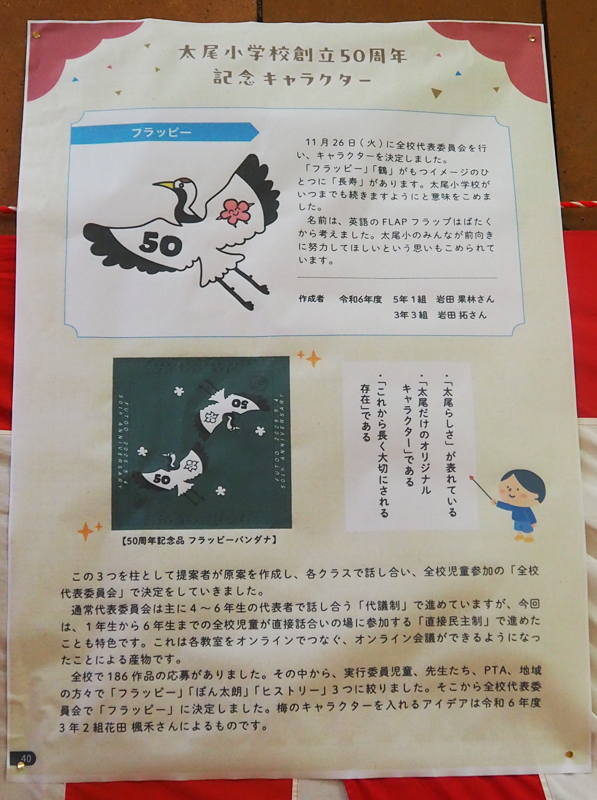 太尾小学校創立50周年
記念キャラクター
フラッピー
50
11月26日(火)に全校代表委員会を行
い、キャラクターを決定しました。
「フラッピー」「鶴」がもつイメージのひ
とつに「長寿」があります。太尾小学校が
いつまでも続きますようにと意味をこめま
した。
名前は、英語のFLAPフラップはばたく
から考えました。太尾小のみんなが前向き
に努力してほしいという思いもこめられて
います。
作成者 令和6年度 5年1組 岩田 果林さん
3年3組 岩田 拓さん
50
50
FUTOO 2025.5.4
50th ANNIVERSARY
FUTOO 2025.5.4
50th ANNIVERSARY
【50周年記念品 フラッピーバンダナ】
・「太尾らしさ」が表れている
・「太尾だけのオリジナル
キャラクター」である
・「これから長く大切にされる
存在」である
この3つを柱として提案者が原案を作成し、各クラスで話し合い、全校児童参加の「全校
代表委員会」で決定をしていきました。
通常代表委員会は主に4～6年生の代表者で話し合う「代議制」で進めていますが、今回
は、1年生から6年生までの全校児童が直接話合いの場に参加する「直接民主制」で進めた
ことも特色です。これは各教室をオンラインでつなぐ、オンライン会議ができるようになっ
たことによる産物です。
全校で186作品の応募がありました。その中から、実行委員児童、先生たち、PTA、地域
の方々で「フラッピー」「ぽん太朗」「ヒストリー」3つに絞りました。そこから全校代表委
員会で「フラッピー」に決定しました。梅のキャラクターを入れるアイデアは令和6年度
3年2組花田 楓禾さんによるものです。
40